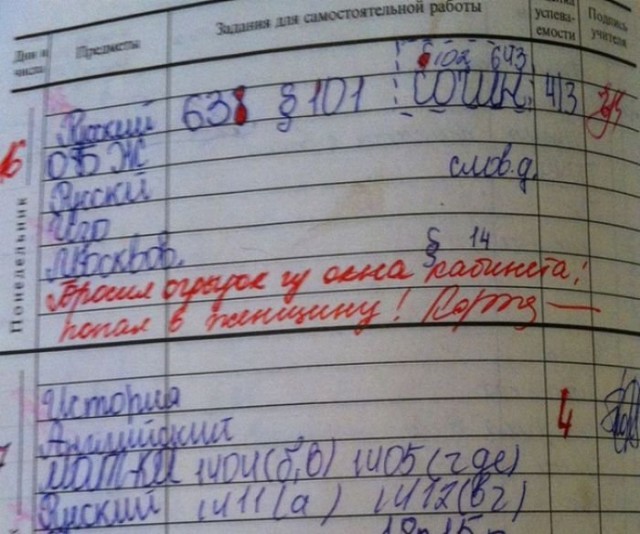 Дни и числа Предметы Задания для самостоятельной работы успева-емости Подпись учителя
§102 643
Русский 638 §101 СОЧИН. 4/3
16 ОБЖ
Русский слов.д.
Изо
Москвов. § 14
Понедельник
Бросил огрызок из окна кабинета!
попал в женщину!
История
Английский 4
МАТЕМ 1404(б,в) 1405(где)
Руский 1411(а) 1412(вг)